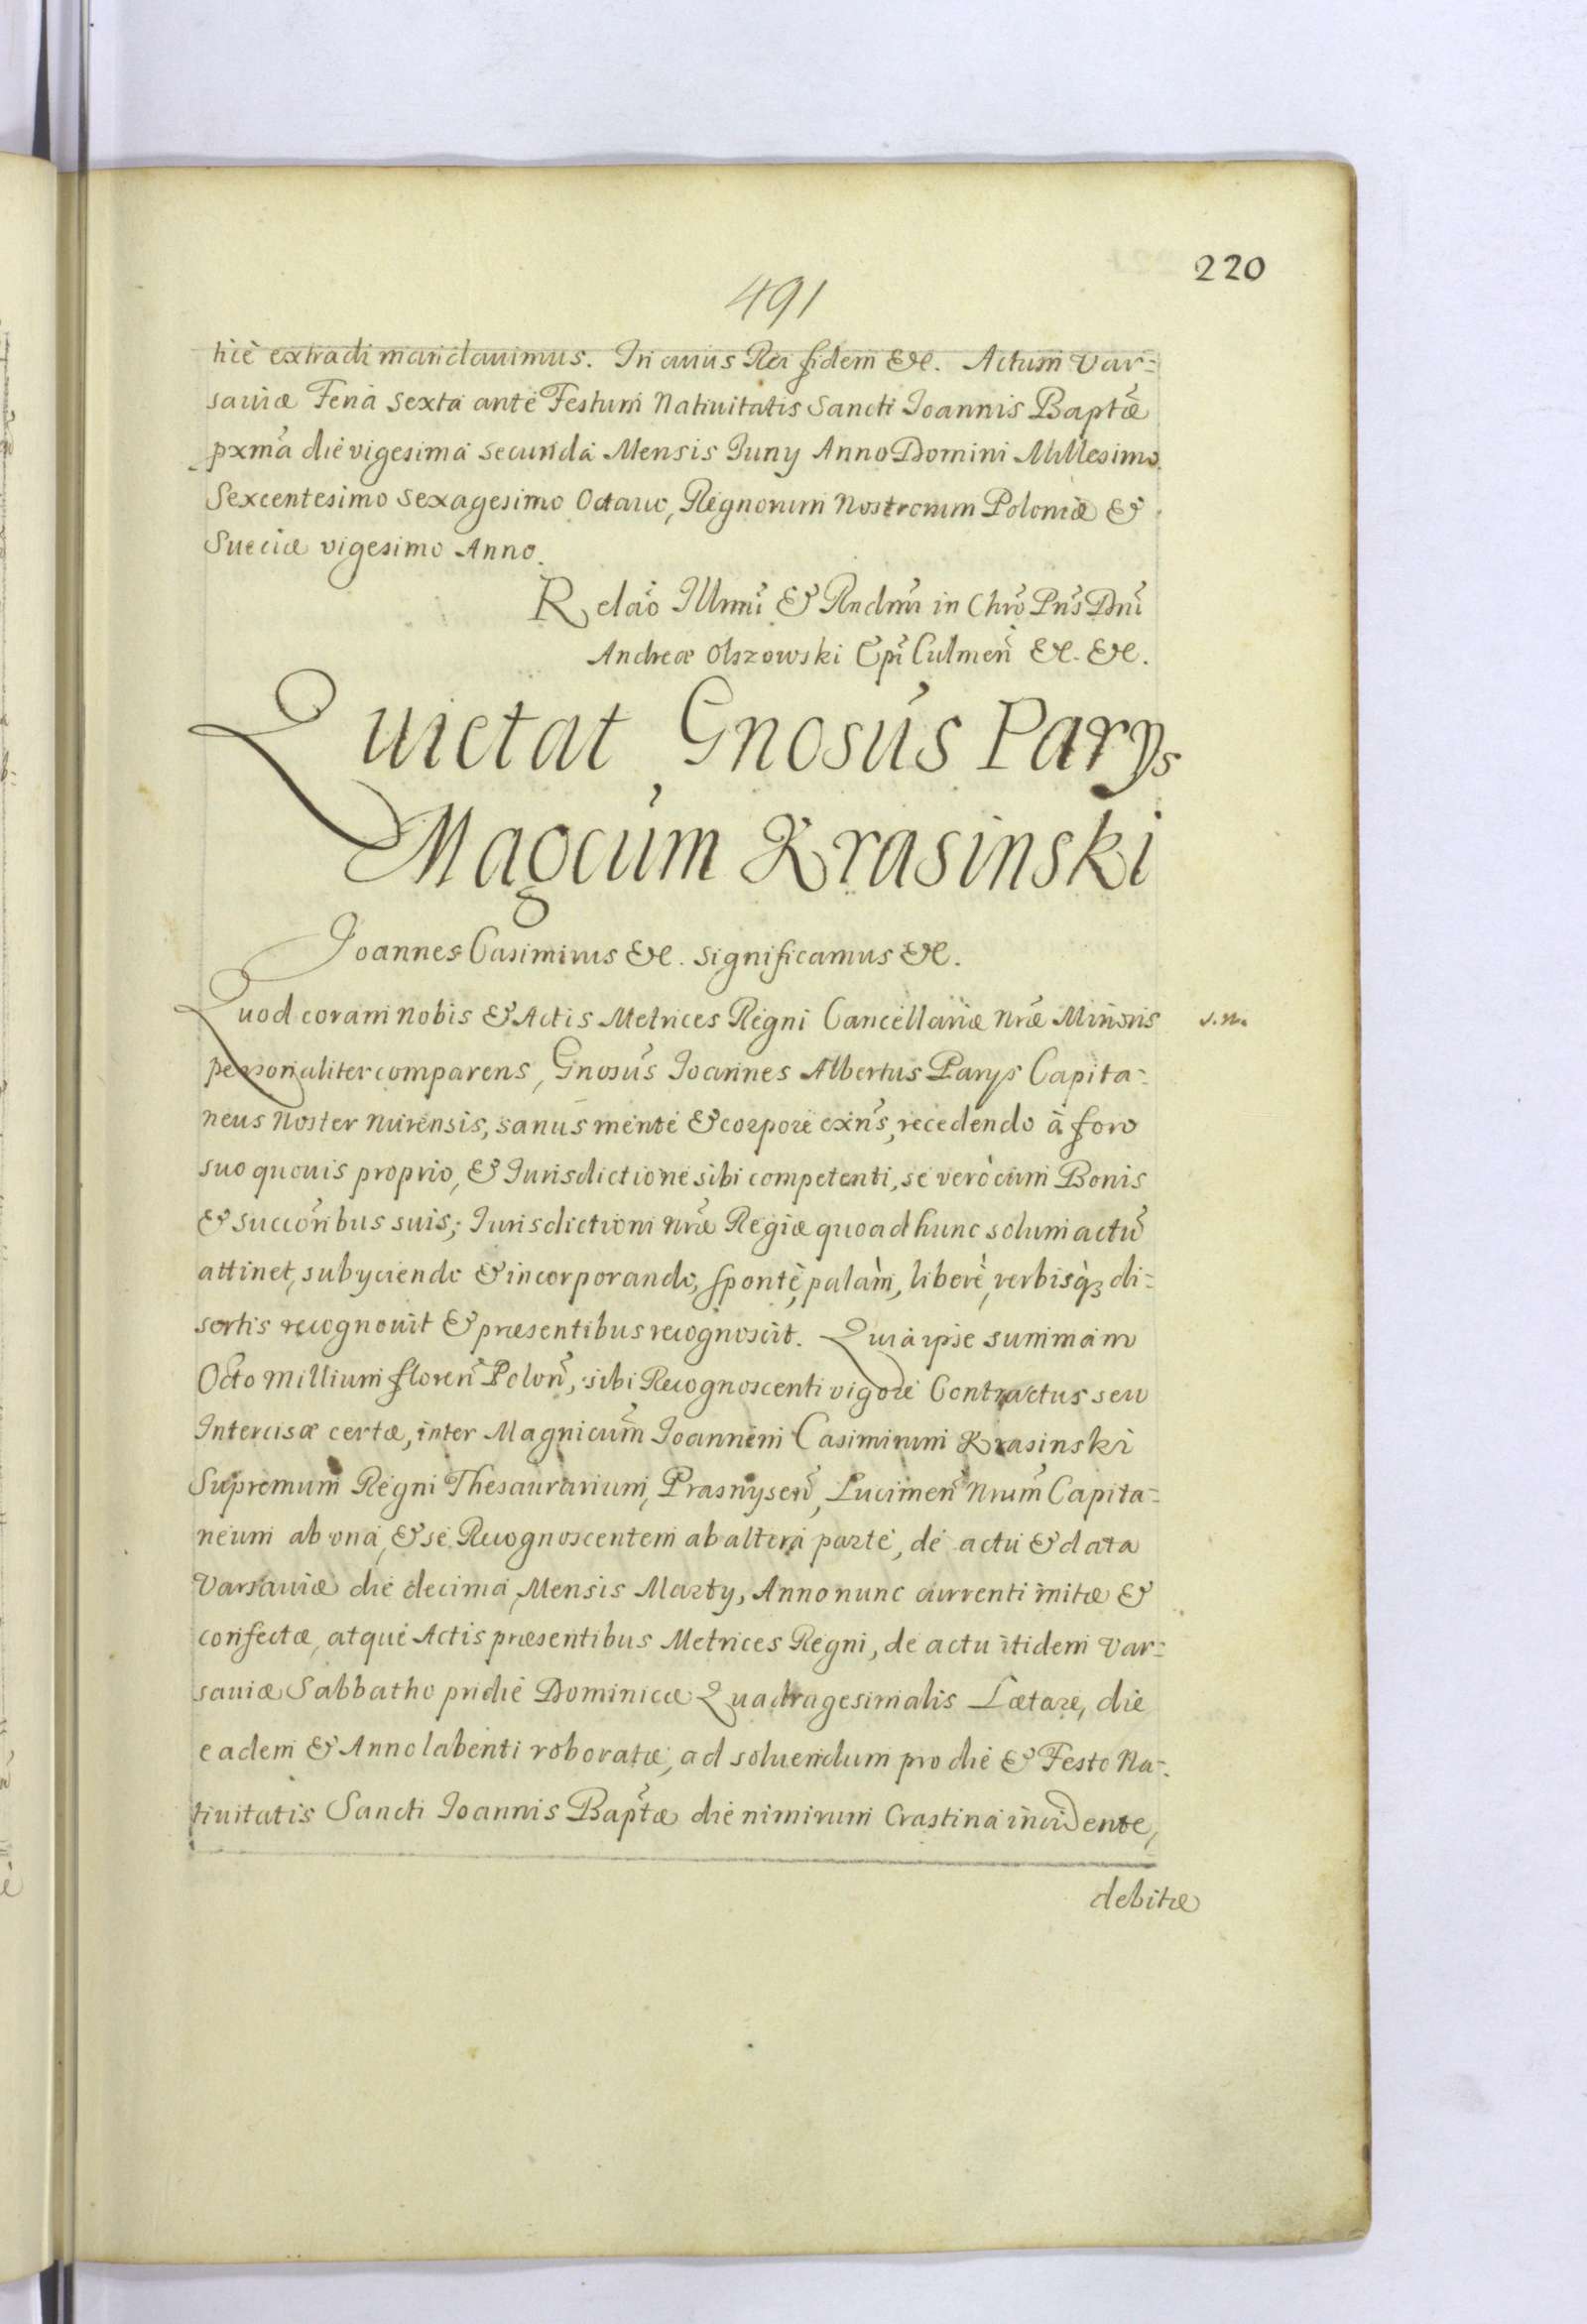 220
491
tice extradi mandauimus. In cuius Rei fidem &c. Actum Var=
sauiæ Feria Sexta ante Festum Natiuitatis Sancti Ioannis Baptæ
pxma die vigesima secunda Mensis Iuny Anno Domini Millesimo
Sexcentesimo Sexagesimo Octauo, Regnorum Nostrorum Poloniæ &
Sueciæ vigesimo Anno.
Relao Illmi & Rndmi in Chro Pris Dni
Andreæ Olszowski Epi Culmen &c. &c.
Quietat Gnosus Parys
Magcum Krasinski
Ioannes Casimirus &c. significamus &c.
Quod coram nobis & Actis Metrices Regni Cancellariæ nræ Minoris
s.n.
personaliter comparens, Gnosus Ioannes Albertus Parys Capita=
neus Noster Nurensis, sanus mente & corpore exns, recedendo à foro
suo quouis proprio, & Iurisdictione sibi competenti, se verò cum Bonis
& succoribus suis, Iurisdictioni nræ Regiæ quoad hunc solum actu
attinet, subyciendo & incorporando, spontè, palàm, liberè, verbisq3 di=
sertis recognouit & præsentibus recognoscit. Quia ipse summam
Octo millium floren Polon, sibi Recognoscenti vigore Contractus seu
Intercisæ certæ, inter Magnicum Ioannem Casimirum Krasinski
Supremum Regni Thesaurarium, Prasnysen, Lucimen Nrum Capita=
neum ab vna, & se Recognoscentem ab altera parte, de actu & data
Varsauiæ die decima Mensis Marty, Anno nunc currenti initæ &
confectæ, atque Actis præsentibus Metrices Regni, de actu itidem Var=
sauiæ Sabbatho pridie Dominicæ Quadragesimalis Lætare, die
eadem & Anno labenti roboratæ, ad soluendum pro die & Festo Na=
tiuitatis Sancti Ioannis Baptæ die nimirum Crastina incidente,
debitæ